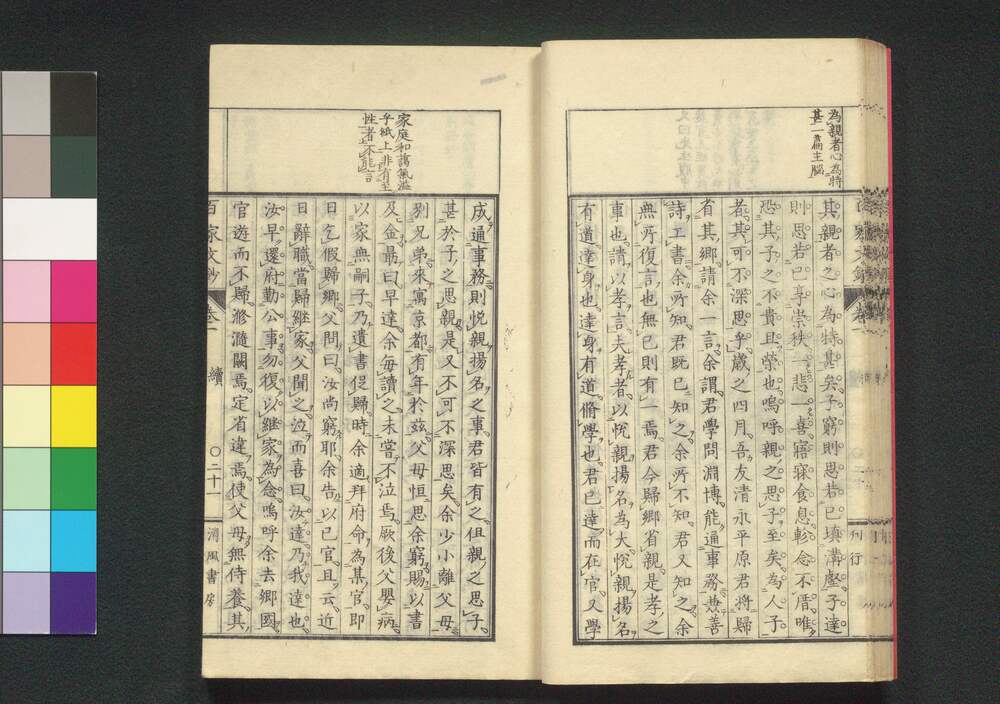 為親者心為特
甚一篇主腦
其親者之心為特甚矣子窮則思若已填溝壑子達
則思若已享崇秩一悲一喜寤寐食息軫念不厝唯
恐其子之不貴且榮也嗚呼親之思子至矣為人子
者其可不深思乎歲之四月吾友清永平原君將歸
省其鄉請余一言余謂君學問淵博能通事務兼善
詩工書余所知君既已知之余所不知君又知之余
無所復言也無已則有一焉君今歸鄉省親是孝之
事也請以孝言夫孝者以悅親揚名為大悅親揚名
有道達身也達身有道脩學也君已達而在官又學
刊行
家庭和藹氣溢
乎紙上非有至
性者不能言
成通事務則悅親揚名之事君皆有之但親之思子
甚於子之思親是又不可不深思矣余少小離父母
別兄弟來寓京都有年於茲父母恒思余窮賜以書
及金最曰早達余每讀之未嘗不泣焉厥後父嬰病
以家無嗣子乃遺書促歸時余適拜府命為某官即
日乞假歸鄉父問曰汝尚窮耶余告以已官且云近
日辭職當歸繼家父聞之泣而喜曰汝達乃我達也
汝早還府勤公事勿復以繼家為念嗚呼余去鄉國
官遊而不歸滫瀡闕焉定省違焉使父母無侍養其
百家文鈔
卷一
續
〇二十一
清風書房